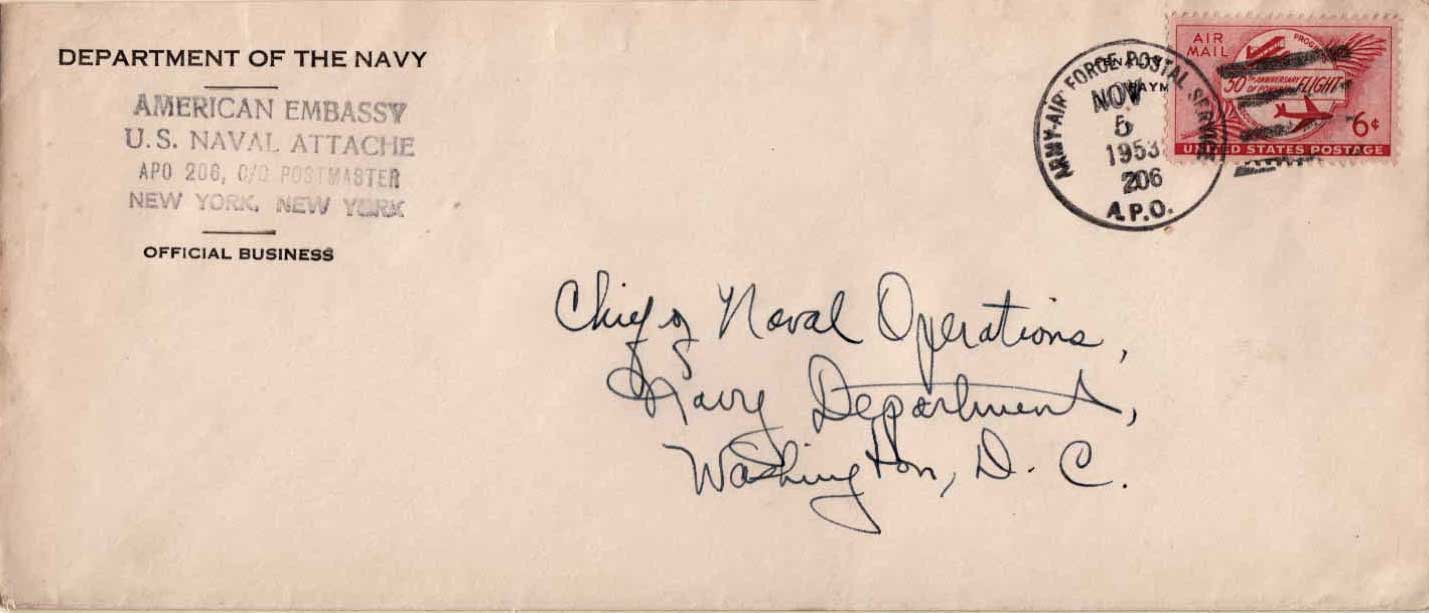 DEPARTMENT OF THE NAVY
AMERICAN EMBASSY
U.S. NAVAL ATTACHE
APO 206, C/O POSTMASTER
NEW YORK, NEW YORK
OFFICIAL BUSINESS
ARMY-AIR FORCE POSTAL SERVICE
NOV
5
1953
206
A.P.O.
AIR
MAIL
50TH ANNIVERSARY
OF POWERED FLIGHT
6¢
UNITED STATES POSTAGE
Chief of Naval Operations,
Navy Department,
Washington, D. C.